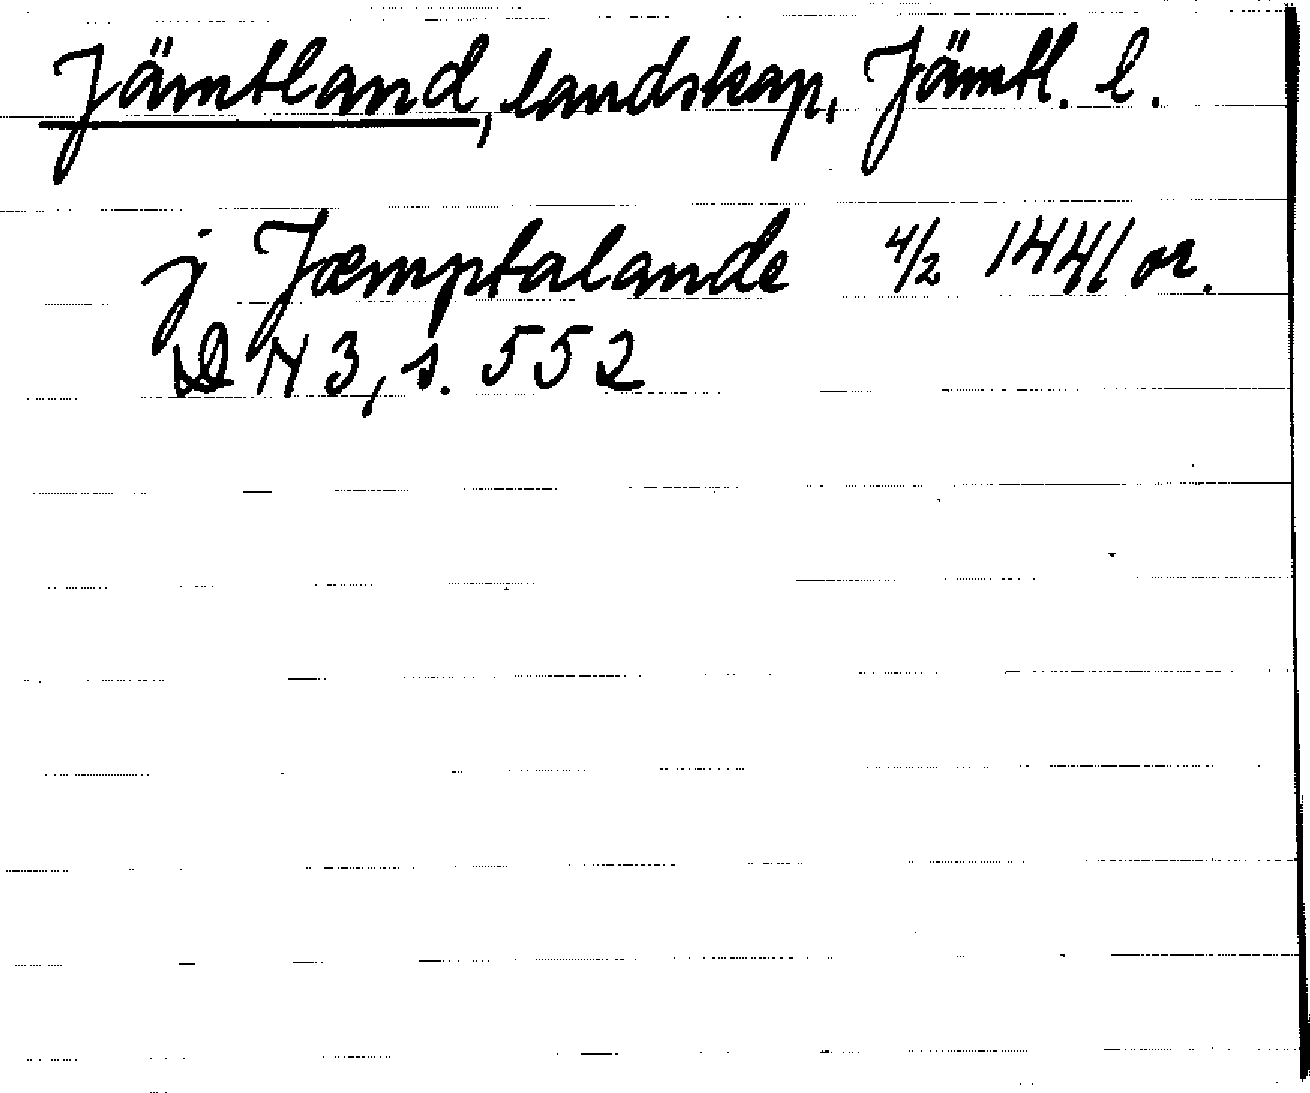 Jämtland, landskap, Jämtl. l.
j Jæmptalande 4/2 1441 or.
DN 3, s. 552